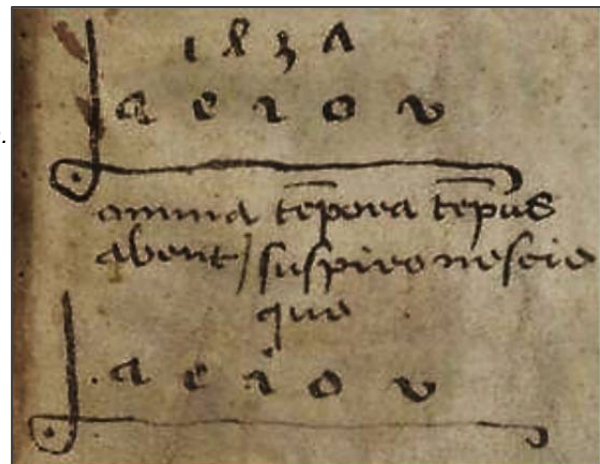 1 4 3 7
a e i o v
omnia tēpora tēpus
abent / suspiro nescio
quo
. a e i o v